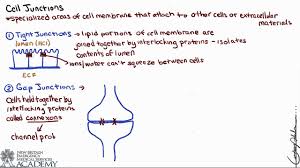 Cell Junctions
*specialized areas of cell membrane that attach to other cells or extracellular materials
① Tight Junctions → lipid portions of cell membrane are
joined together by interlocking proteins - isolates
contents of lumen
lumen (HCl)
ions/water can't squeeze between cells
ECF
② Gap Junctions →
Cells held together by
interlocking proteins
called connexons
channel prot
NEW BRITAIN
EMERGENCY
MEDICAL SERVICES
ACADEMY